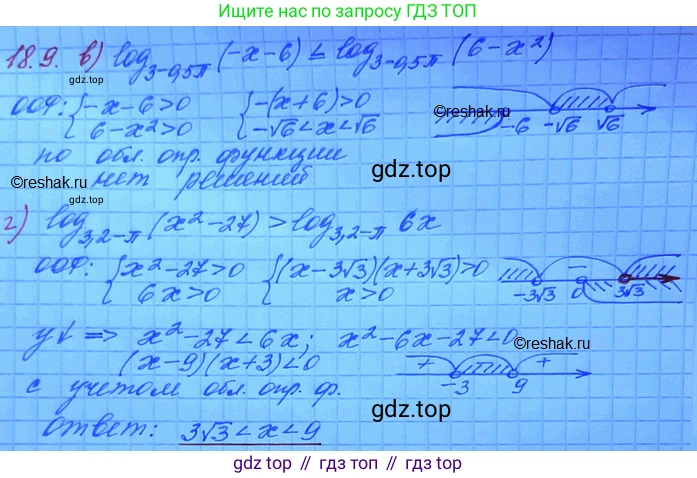 Ищите нас по запросу ГДЗ ТОП
18.9. в) log₃₋₀,₅π (-x-6) ≤ log₃₋₀,₅π (6-x²)
gdz.top
ООФ: { -x-6>0 { -(x+6)>0
6-x²>0 -√6<x<√6
-6 -√6 √6
©reshak.ru
по обл. опр. функции
нет решений
gdz.top
©reshak.ru
г) log₃,₂₋π (x²-27) > log₃,₂₋π 6x
ООФ: { x²-27>0 { (x-3√3)(x+3√3)>0
6x>0 x>0
-3√3 - 0 3√3
y↓ => x²-27<6x; x²-6x-27<0
©reshak.ru
(x-9)(x+3)<0
+ - +
-3 9
с учетом обл. опр. ф.
gdz.top
ответ: 3√3<x<9
gdz top // гдз топ // gdz.top